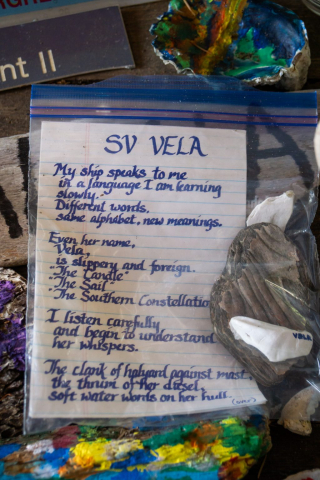 nt II
SV VELA
My ship speaks to me
in a language I am learning
slowly.
Different words,
same alphabet, new meanings.
Even her name,
Vela,
is slippery and foreign.
"The Candle"
"The Sail"
"The Southern Constellation
I listen carefully
and begin to understand
her whispers.
The clank of halyard against mast.
the thrum of her diesel.
soft water words on her hull.
VELA